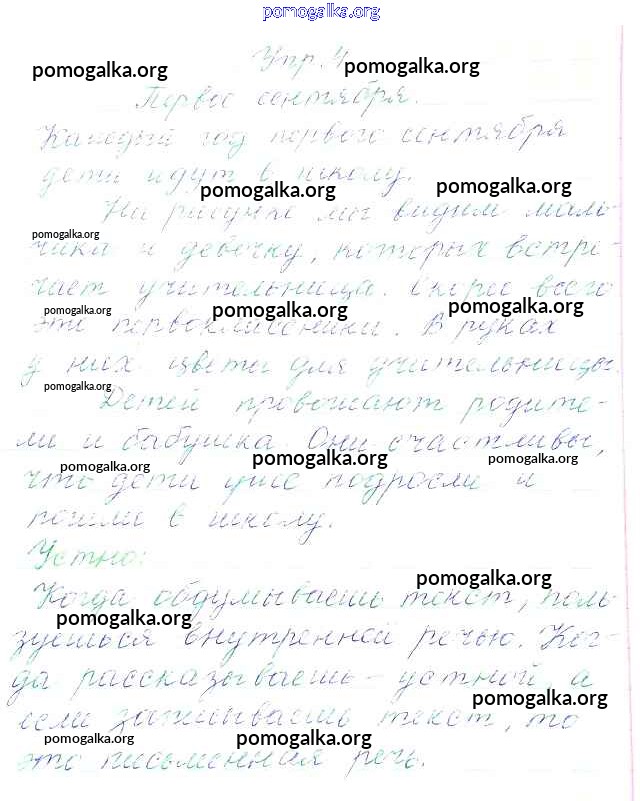 pomogalka.org
Упр. 4
pomogalka.org pomogalka.org
Первое сентября.
Каждый год первого сентября
дети идут в школу.
pomogalka.org pomogalka.org
На рисунке мы видим маль-
pomogalka.org
чика и девочку, которых встре-
чает учительница. Скорее всего
pomogalka.org pomogalka.org pomogalka.org
это первоклассники. В руках
у них цветы для учительницы.
pomogalka.org
Детей провожают родите-
ли и бабушка. Они счастливы,
pomogalka.org pomogalka.org pomogalka.org
что дети уже подросли и
пошли в школу.
Устно:
pomogalka.org
Когда обдумываешь текст, поль-
pomogalka.org
зуешься внутренней речью. Ког-
да рассказываешь - устной, а
pomogalka.org
если записываешь текст, то
pomogalka.org pomogalka.org
это письменная речь.